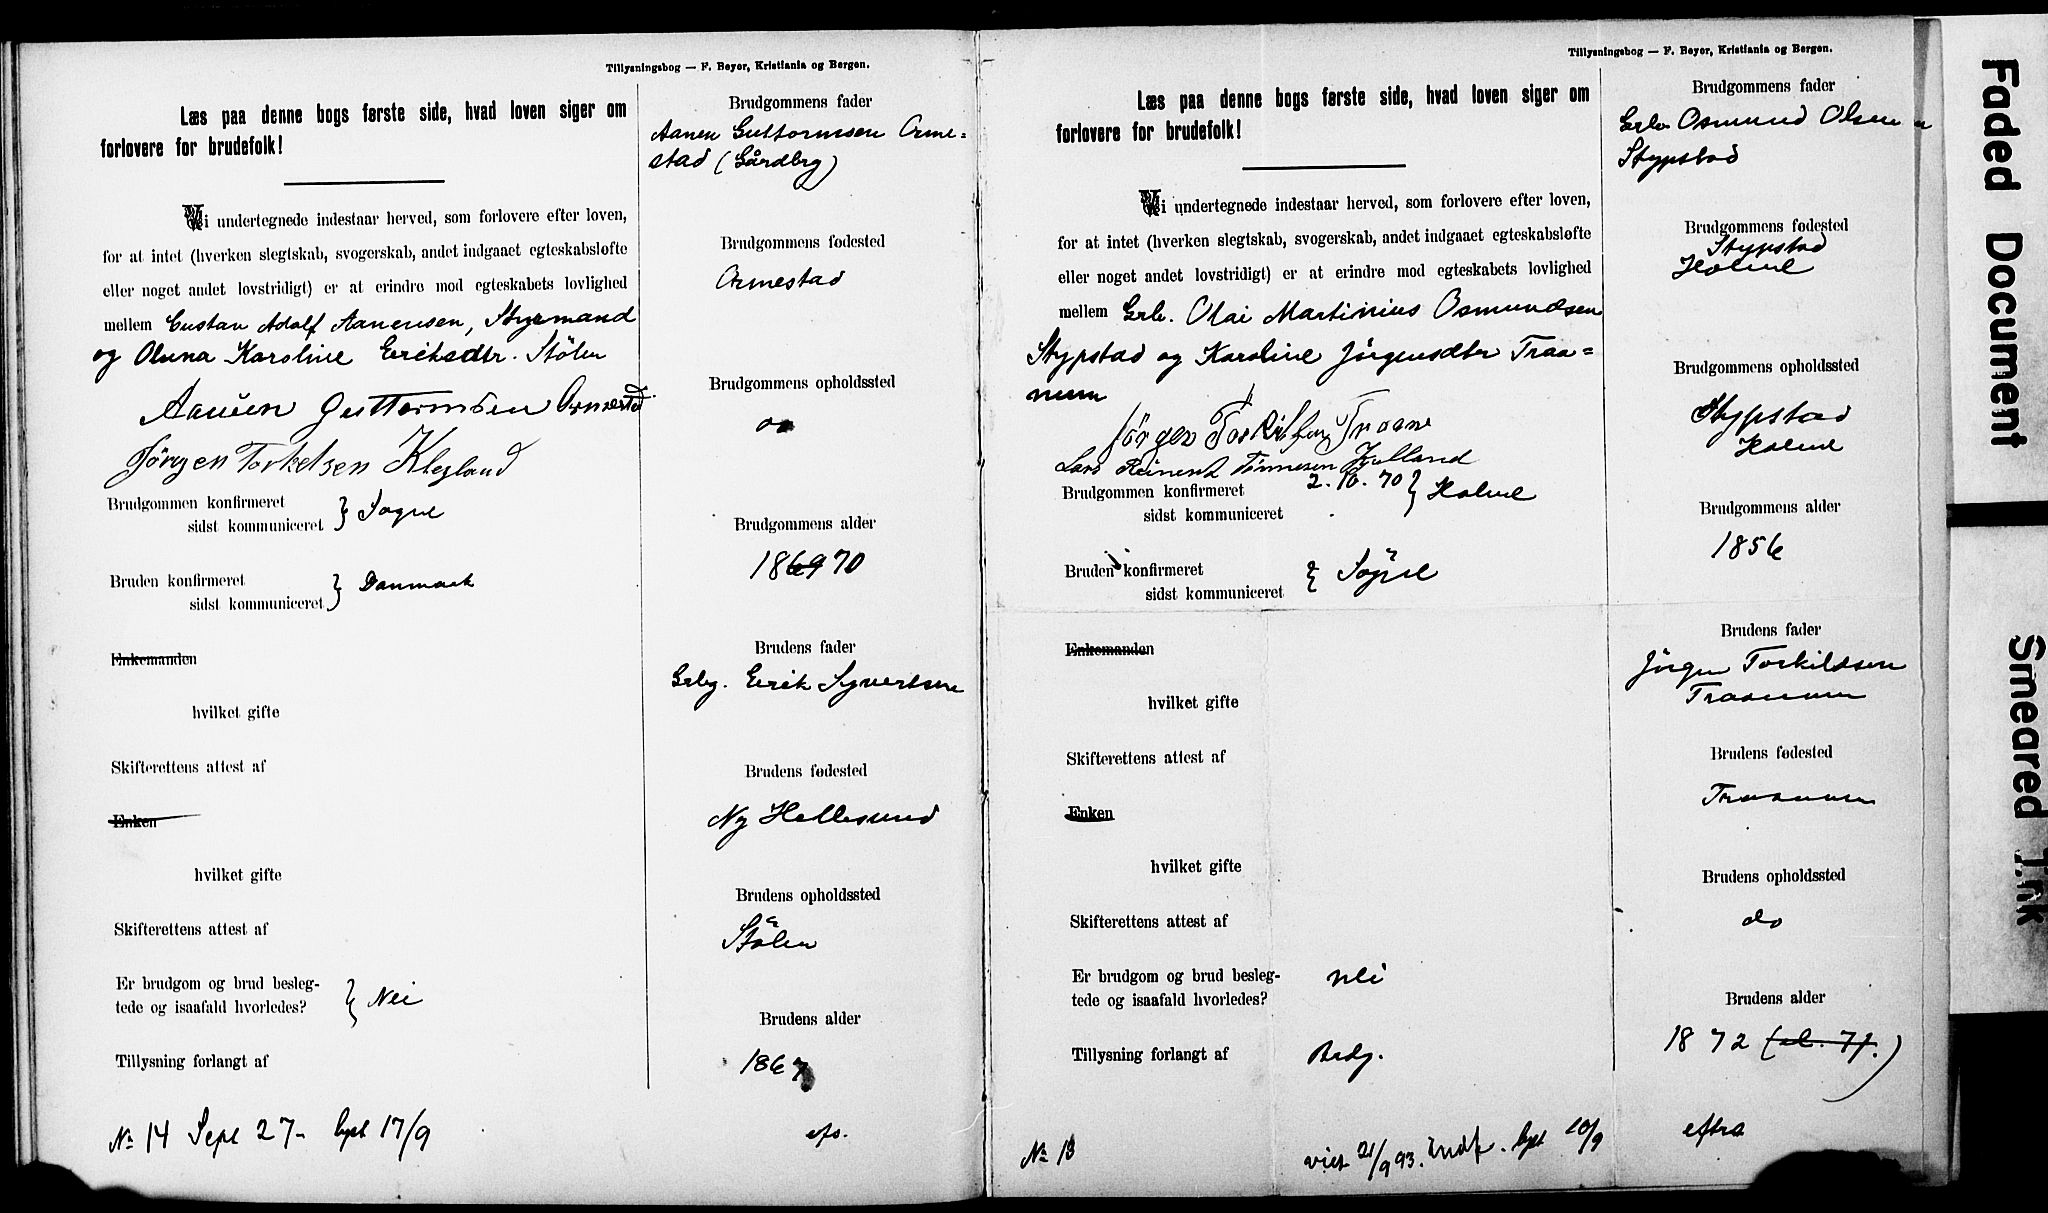 Tillysningsbog — F. Beyer, Kristiania og Bergen.
Læs paa denne bogs første side, hvad loven siger om
forlovere for brudefolk!
Vi undertegnede indestaar herved, som forlovere efter loven,
for at intet (hverken slegtskab, svogerskab, andet indgaaet egteskabsløfte
eller noget andet lovstridigt) er at erindre mod egteskabets lovlighed
mellem Gustav Adolf Aanensen, Styrmand
og Oluna Karoline Eriksdtr. Stölen
Aanen Guttormsen Ormestad
Jörgen Torkelsen Klepland
Brudgommen konfirmeret
sidst kommuniceret } Søgne
Bruden konfirmeret
sidst kommuniceret } Danmark
Enkemanden
hvilket gifte
Skifterettens attest af
Enken
hvilket gifte
Skifterettens attest af
Er brudgom og brud besleg-
tede og isaafald hvorledes? } Nei
Tillysning forlangt af
No 14 Sept 27- lyst 17/9
Brudgommens fader
Aanen Guttormsen Orme-
stad (Gårdbrg)
Brudgommens fødested
Ormestad
Brudgommens opholdssted
do
Brudgommens alder
186970
Brudens fader
Gbrg. Erik Syvertsen
Brudens fødested
Ny Hellesund
Brudens opholdssted
Stölen
Brudens alder
1867
efs.
Tillysningsbog — F. Beyer, Kristiania og Bergen.
Læs paa denne bogs første side, hvad loven siger om
forlovere for brudefolk!
Vi undertegnede indestaar herved, som forlovere efter loven,
for at intet (hverken slegtskab, svogerskab, andet indgaaet egteskabsløfte
eller noget andet lovstridigt) er at erindre mod egteskabets lovlighed
mellem Grbr. Olai Martinius Osmundsen
Stypstad og Karoline Jörgensdtr Traa=
num
Jörgen Torkilsen Traane
Lars Reinert Tønnesen
Brudgommen konfirmeret 2.10.70
sidst kommuniceret } Holme
Bruden konfirmeret
sidst kommuniceret } Søgne
Enkemanden
hvilket gifte
Skifterettens attest af
Enken
hvilket gifte
Skifterettens attest af
Er brudgom og brud besleg- nei
tede og isaafald hvorledes?
Tillysning forlangt af Brdg.
No 13 viet 21/9 93. Indf. lyst 10/9
Brudgommens fader
Grbr Osmund Olsen
Stypstad
Brudgommens fødested
Stypstad
Holme
Brudgommens opholdssted
Stypstad
Holme
Brudgommens alder
1856
Brudens fader
Jörgen Torkildsen
Traanum
Brudens fødested
Traanum
Brudens opholdssted
do
Brudens alder
1872 (al. 71.)
eftra
Faded Document
Smeared Ink